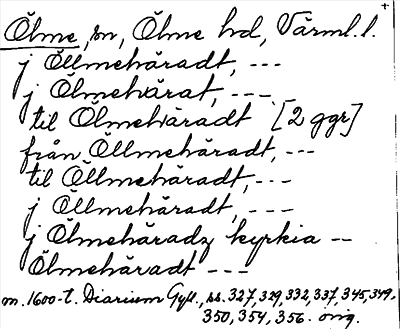 Ölme, sn, Ölme hd, Värml. l.
j Öllmehäradt, ---
j Ölmehärat, ---
til Ölmehäradt [2 ggr]
från Öllmehäradt, ---
til Öllmehäradt, ---
j Öllmehäradt, ---
j Ölmehäradz kyrkia --
Ölmehäradt ---
m. 1600-t. Diarium Gyll., ss. 327, 329, 332, 337, 345, 349,
350, 354, 356. orig.